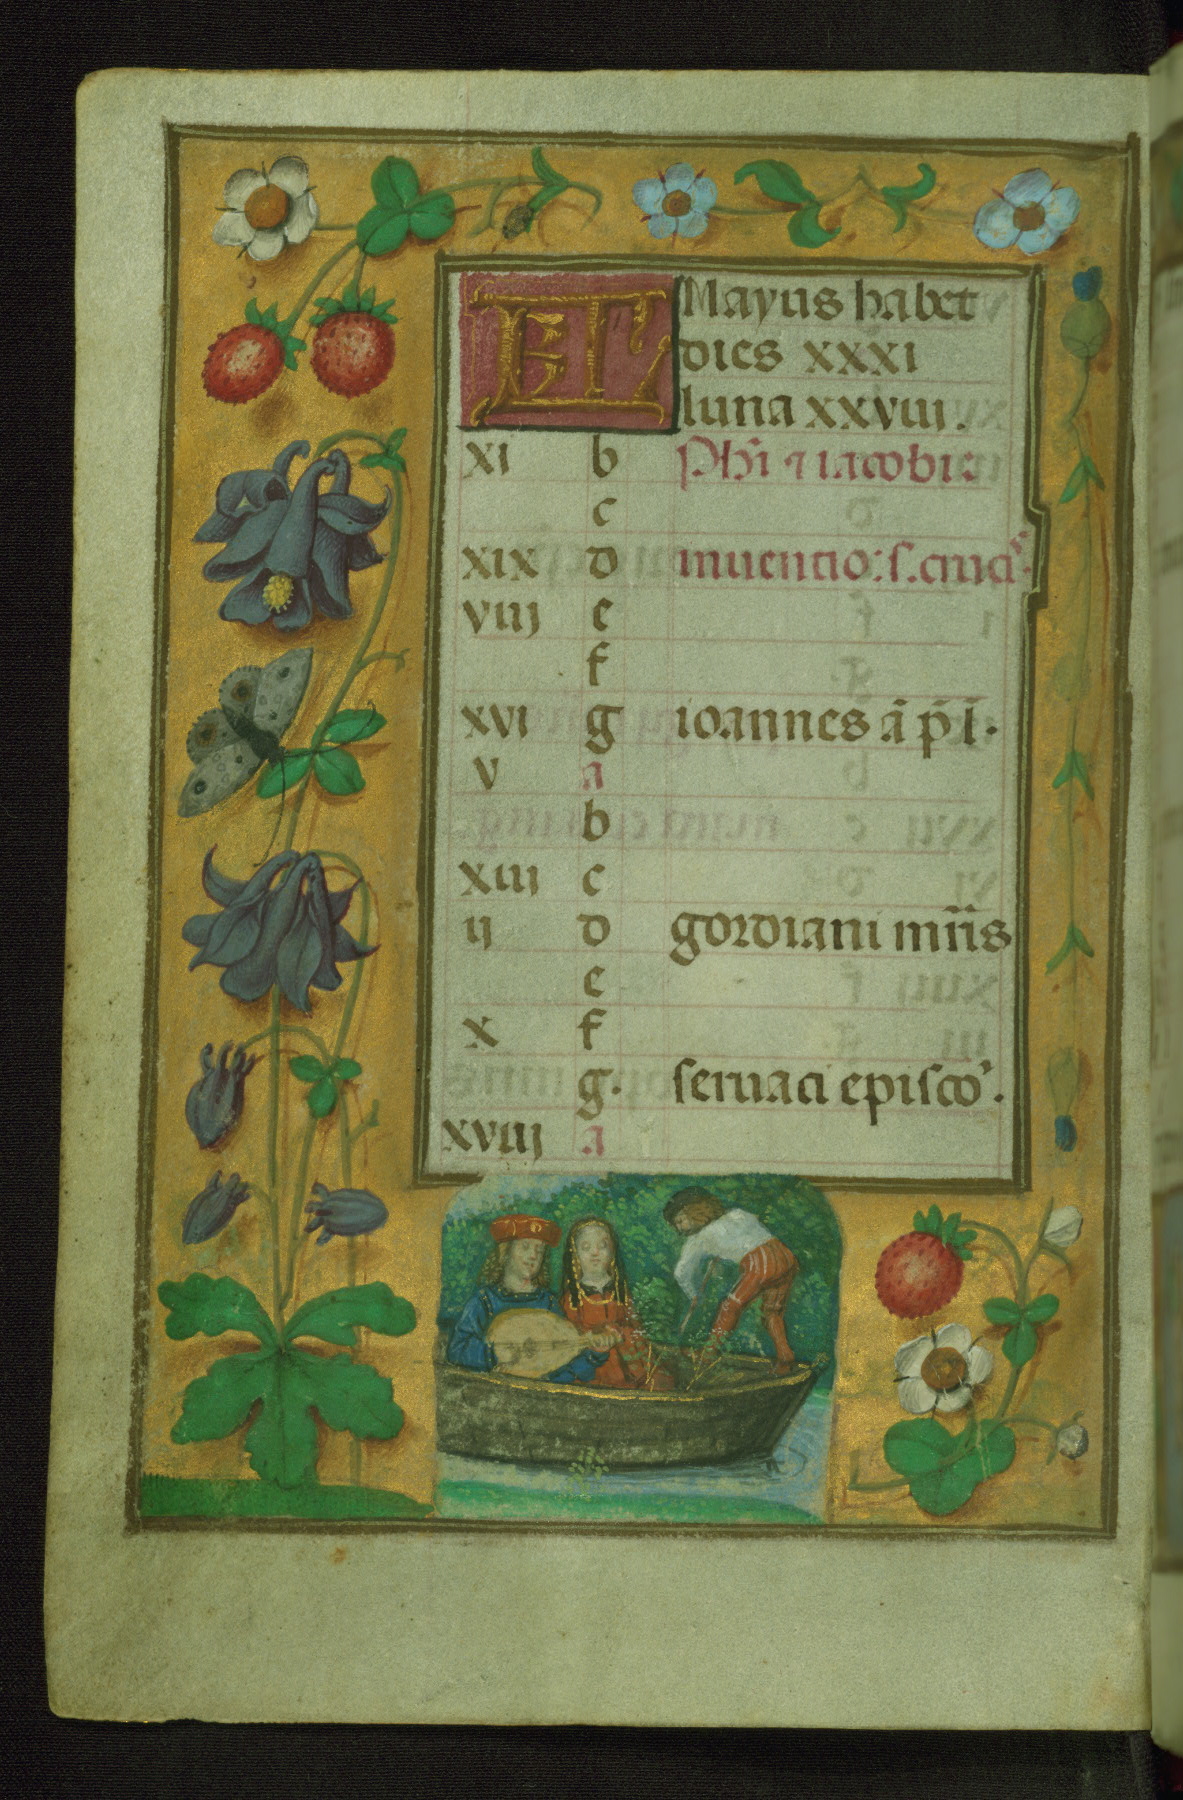 KL Mayus habet
dies xxxi
luna xxviii.
xi b Phi ⁊ iacobi:
c
xix d inuentio: s. cruc̄
viij e
f
xvi g ioannes ā p̄ l.
v a
b
xiij c
ij d gordiani mr̄is
e
x f
g. seruaci episco⁹.
xviij a